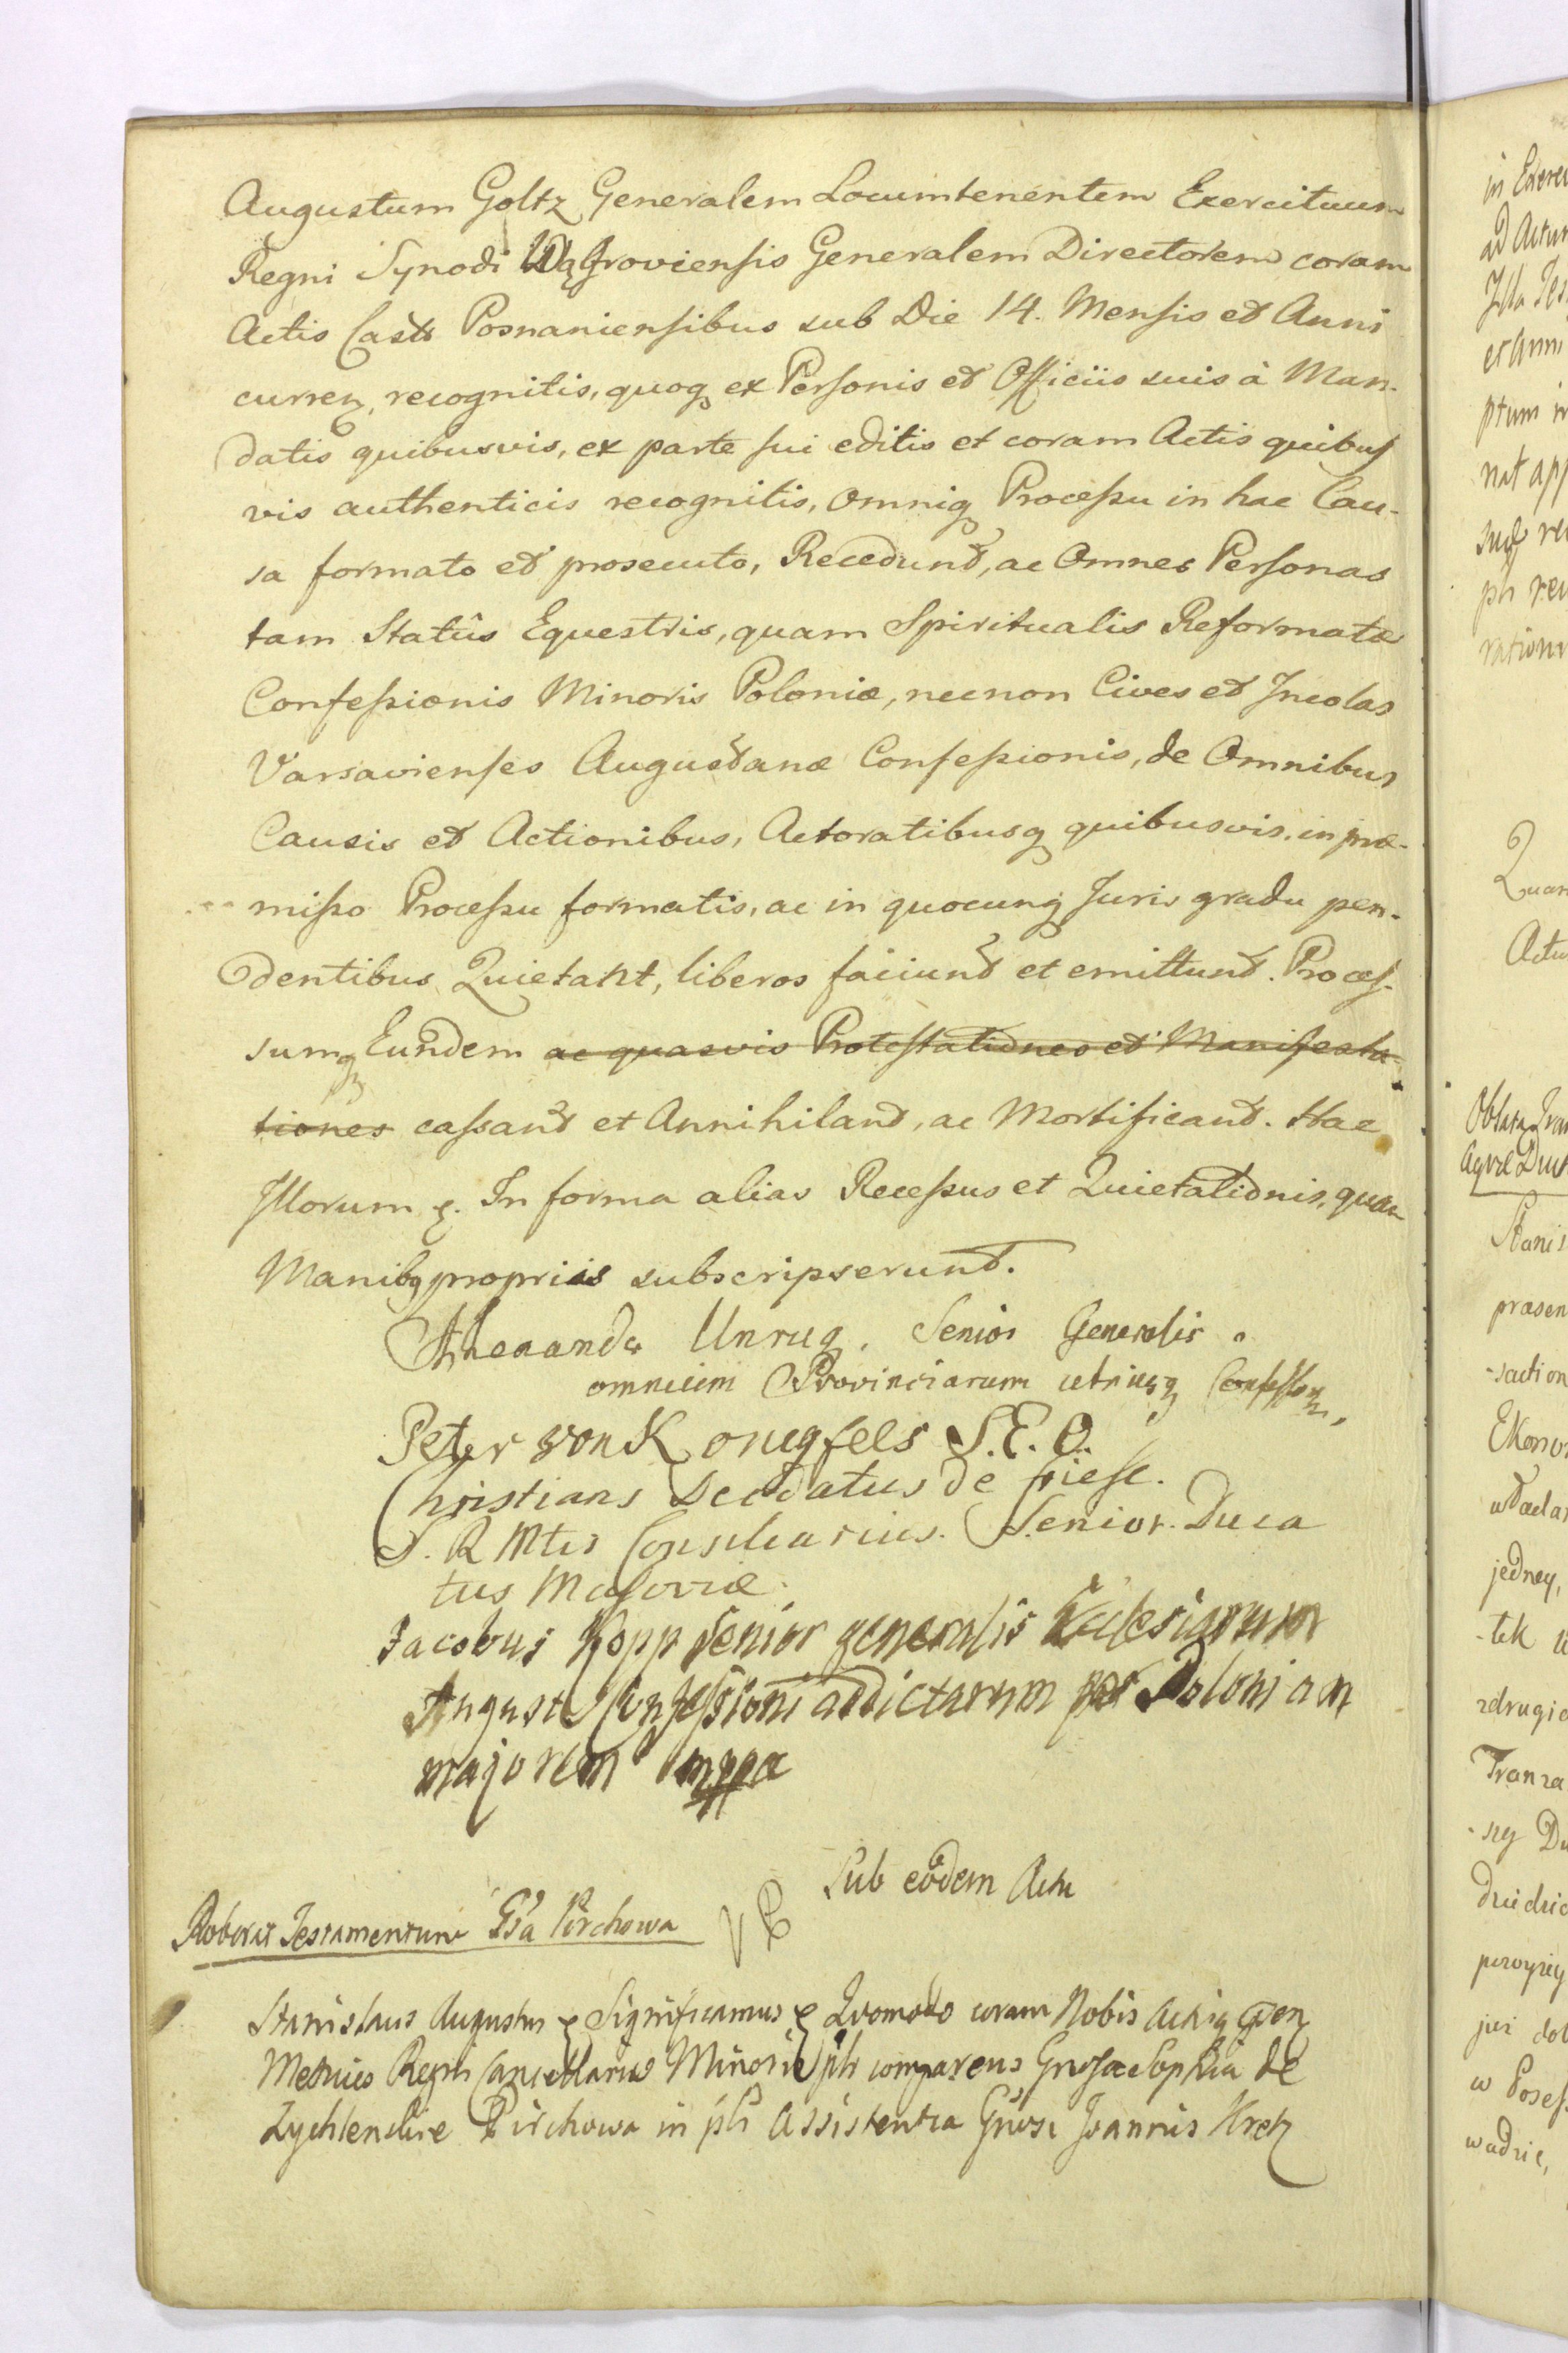 Augustum Goltz Generalem Locumtenentem Exercituum
Regni Synodi Wągroviensis Generalem Directorem coram
Actis Castr Posnaniensibus sub Die 14. Mensis et Anni
curren, recognitis, quoq ex Personis et Officiis suis à Man-
datis quibusvis, ex parte sui editis et coram Actis quibus
vis authenticis recognitis, omniq Processu in hac Cau-
sa formato et prosecuto, Recedunt, ac Omnes Personas
tam Statûs Equestris, quam Spiritualis Reformatæ
Confessionis Minoris Poloniæ, necnon Cives et Incolas
Varsavienses Augustanæ Confessionis, de Omnibus
Causis et Actionibus, Actoratibusq quibusvis, in præ-
misso Processu formatis, ac in quocunq Juris gradu pen-
dentibus Quietant, liberos faciunt et emittunt. Proces-
sumq Eundem ac quasvis Protestationes et Manifesta-
tiones cassant et Annihilant, ac Mortificant. Hac
Illorum p. In forma alias Recessus et Quietationis, quam
Manibq propriis subscripserunt.
Alexander Unrug, Senior Generalis
omnium Provinciarum utriusq Confession,
Peter von Konigfels S. E. O.
Christians Deodatus de friese.
S. R Mtis Consiliarius. Senior. Duca
tus Masoviæ.
Jacobus Kopp Senior generalis Ecclesiarum
August Confessioni addictarum per Poloniam
majorem mppa
Sub eodem Actu
Roborat Testamentum Gsa Pirchowa
Stanislaus Augustus p Significamus p Quomodo coram Nobis Actiq pven
Metrices Regni Cancellariæ Minoris plr comparens Gnrosa Sophia de
Zychlenskie Pirchowa in plr Assistentia Gnrosi Joannis Kretz
in Exerci
ad Actum
Illa Tes
et Anni
ptum in
nat app
suq rec
plr rec
ration
Quan
Actu
Oblata Tran
Stanis
præsen
-saction
Ekono
jedney,
-tek
zdrugie
Tranza
-ney Du
dziedzic
w Posess
wadzie,